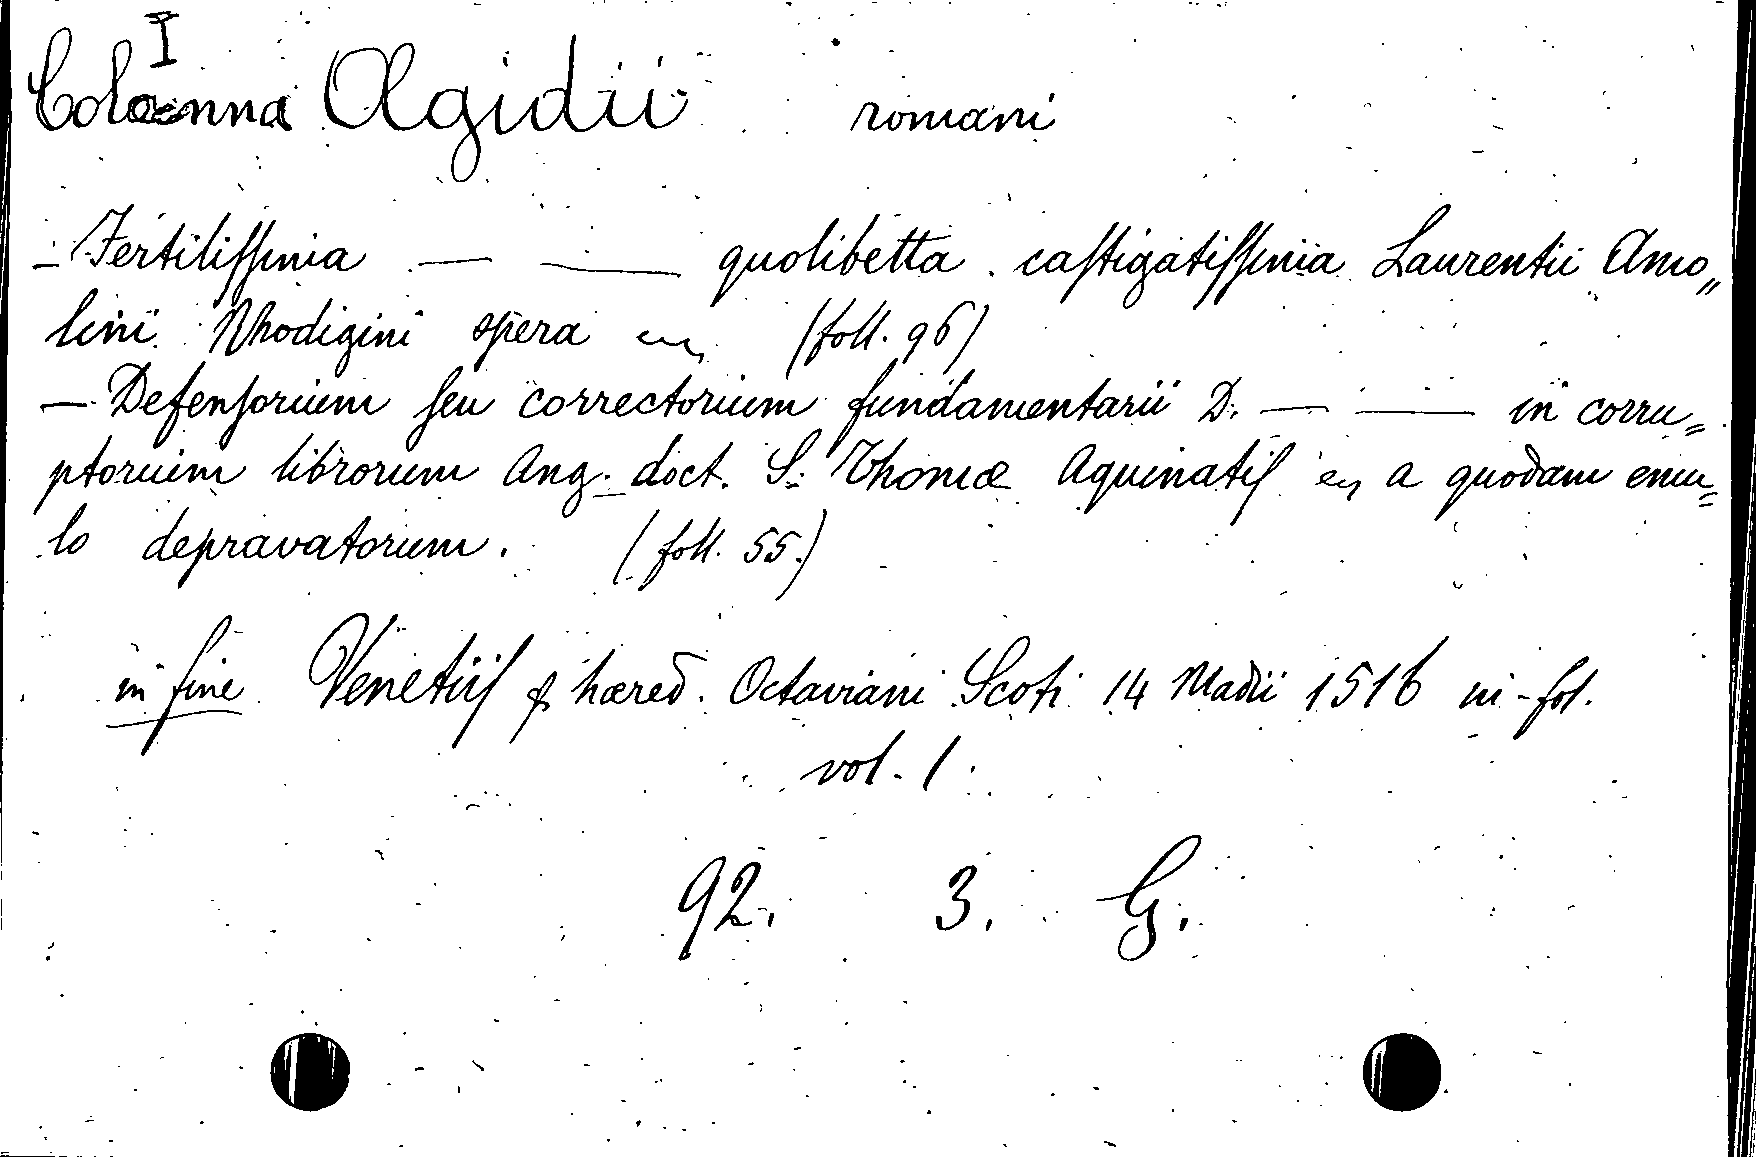 I
Colonna Ægidii romani
- Fertiliſſima — — quolibetta castigatiſſima Laurentii Amo„
lini Rhodigini opera (foll. 96)
— Defenſorium ſeu correctorium fundamentarii D. — — in corru„
ptorium librorum Ang. doct. S. Thomæ Aquinatiſ a quodam emu„
lo depravatorum. (foll. 55.)
in fine Venetiiſ hæred. Octaviani Scoti 14 Madii 1516 in-fol.
vol. 1.
92. 3. G.